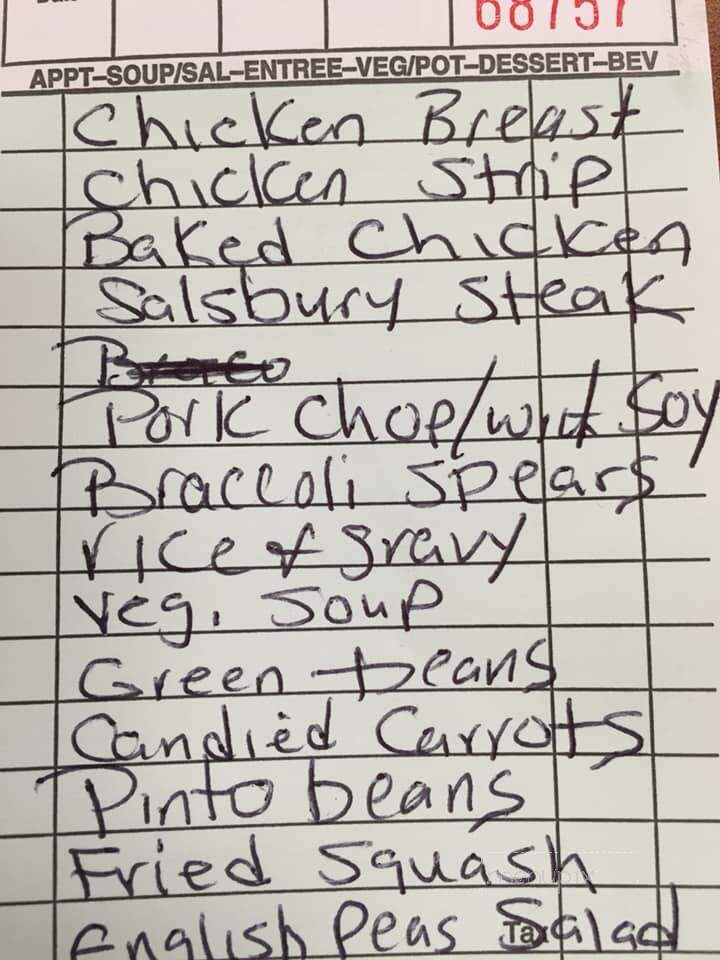 68757
APPT–SOUP/SAL–ENTREE–VEG/POT–DESSERT–BEV
Chicken Breast
Chicken Strip
Baked Chicken
Salsbury Steak
Pork Chop/with Soy
Braccoli Spears
rice & gravy
Veg. Soup
Green beans
Candied Carrots
Pinto beans
Fried Squash
English Peas Salad
Tax